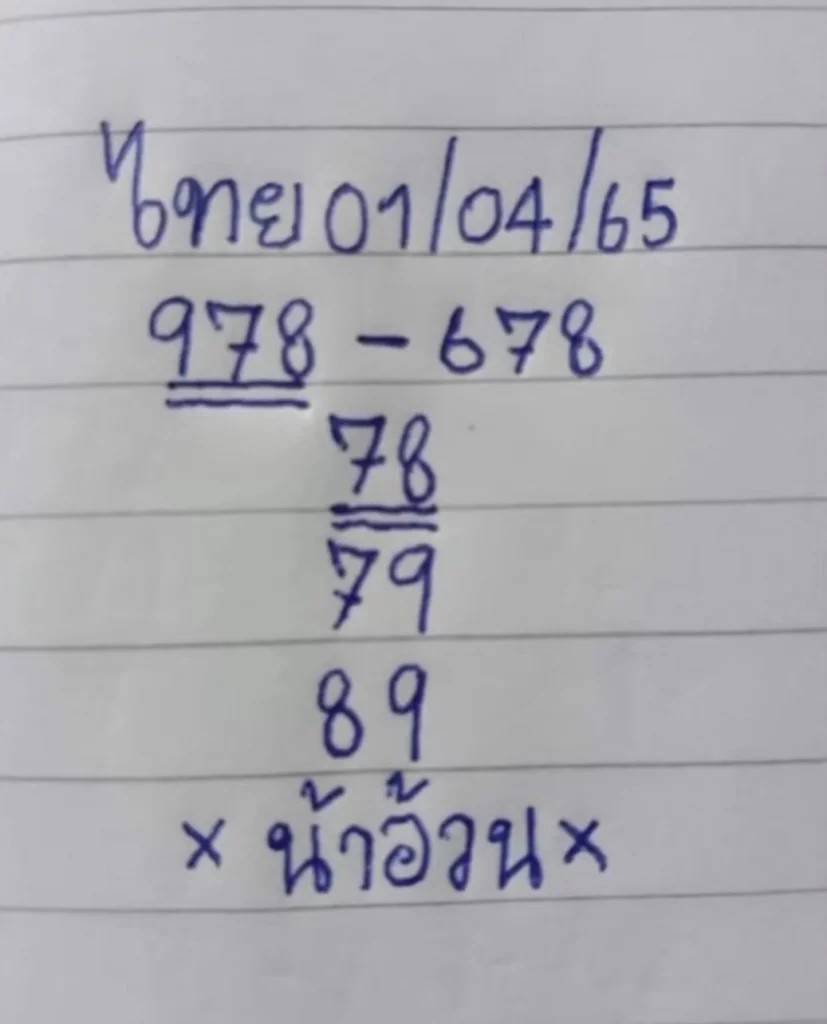 ไทย 01/04/65
978 - 678
78
79
89
× น้าอ้วน ×